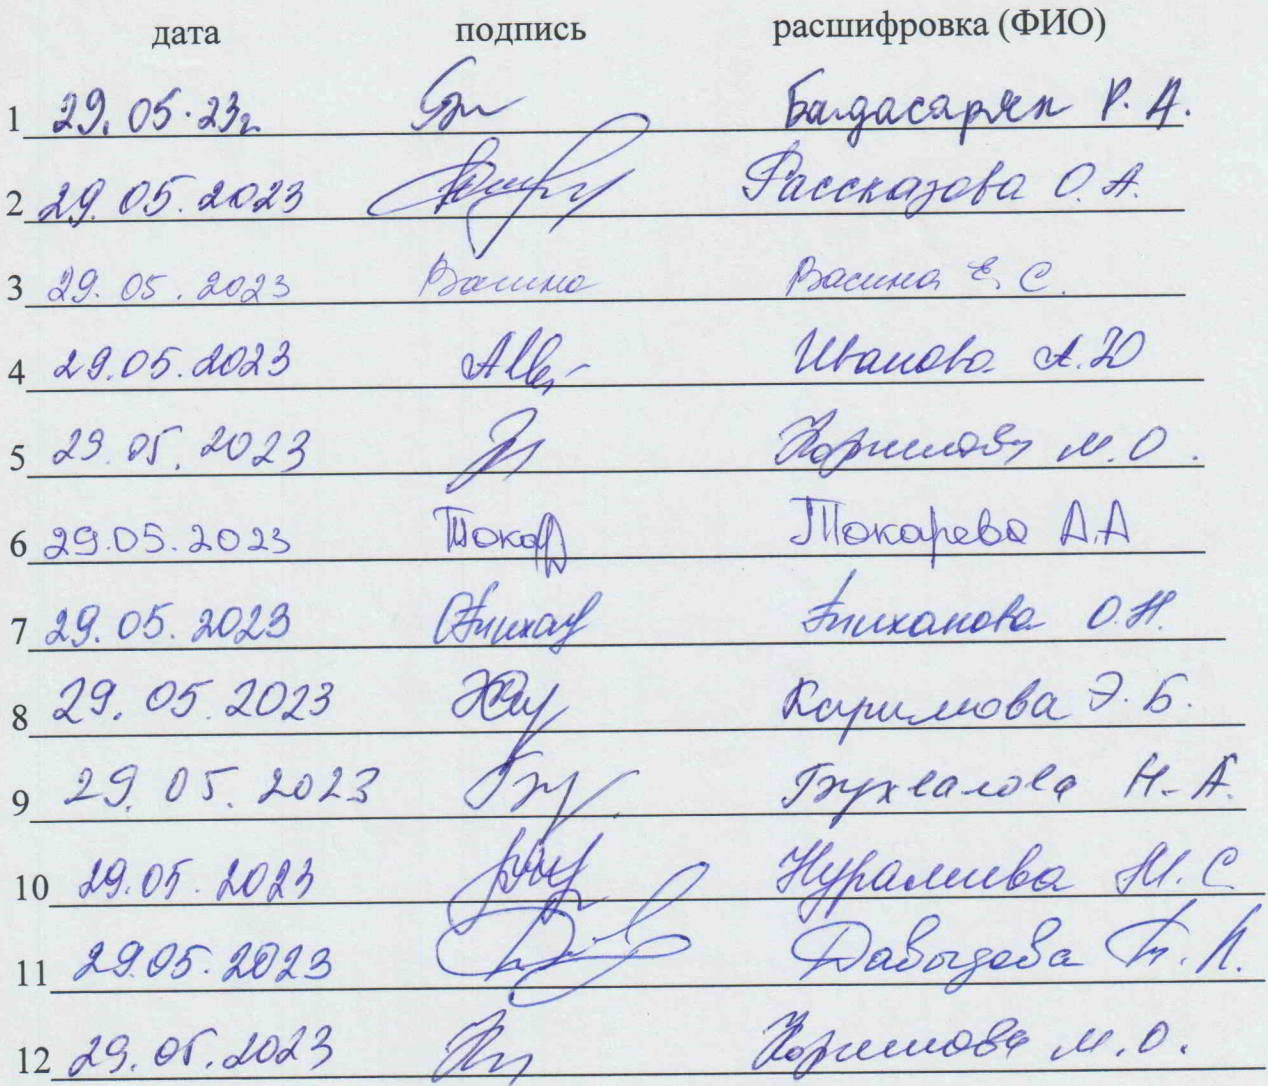 дата подпись расшифровка (ФИО)
1 29.05.23г. Багдасарян Р.А.
2 29.05.2023 Рассказова О.А.
3 29.05.2023 Васина Васина Е.С.
4 29.05.2023 Иванова А.Ю
5 29.05.2023 М.О.
6 29.05.2023 Токар Токарева А.А
7 29.05.2023 Епиханова О.Н.
8 29.05.2023 Каримова Э.Б.
9 29.05.2023 Бухвалова Н.А.
10 29.05.2023 М.С
11 29.05.2023 Давыдова Т.П.
12 29.05.2023 М.О.